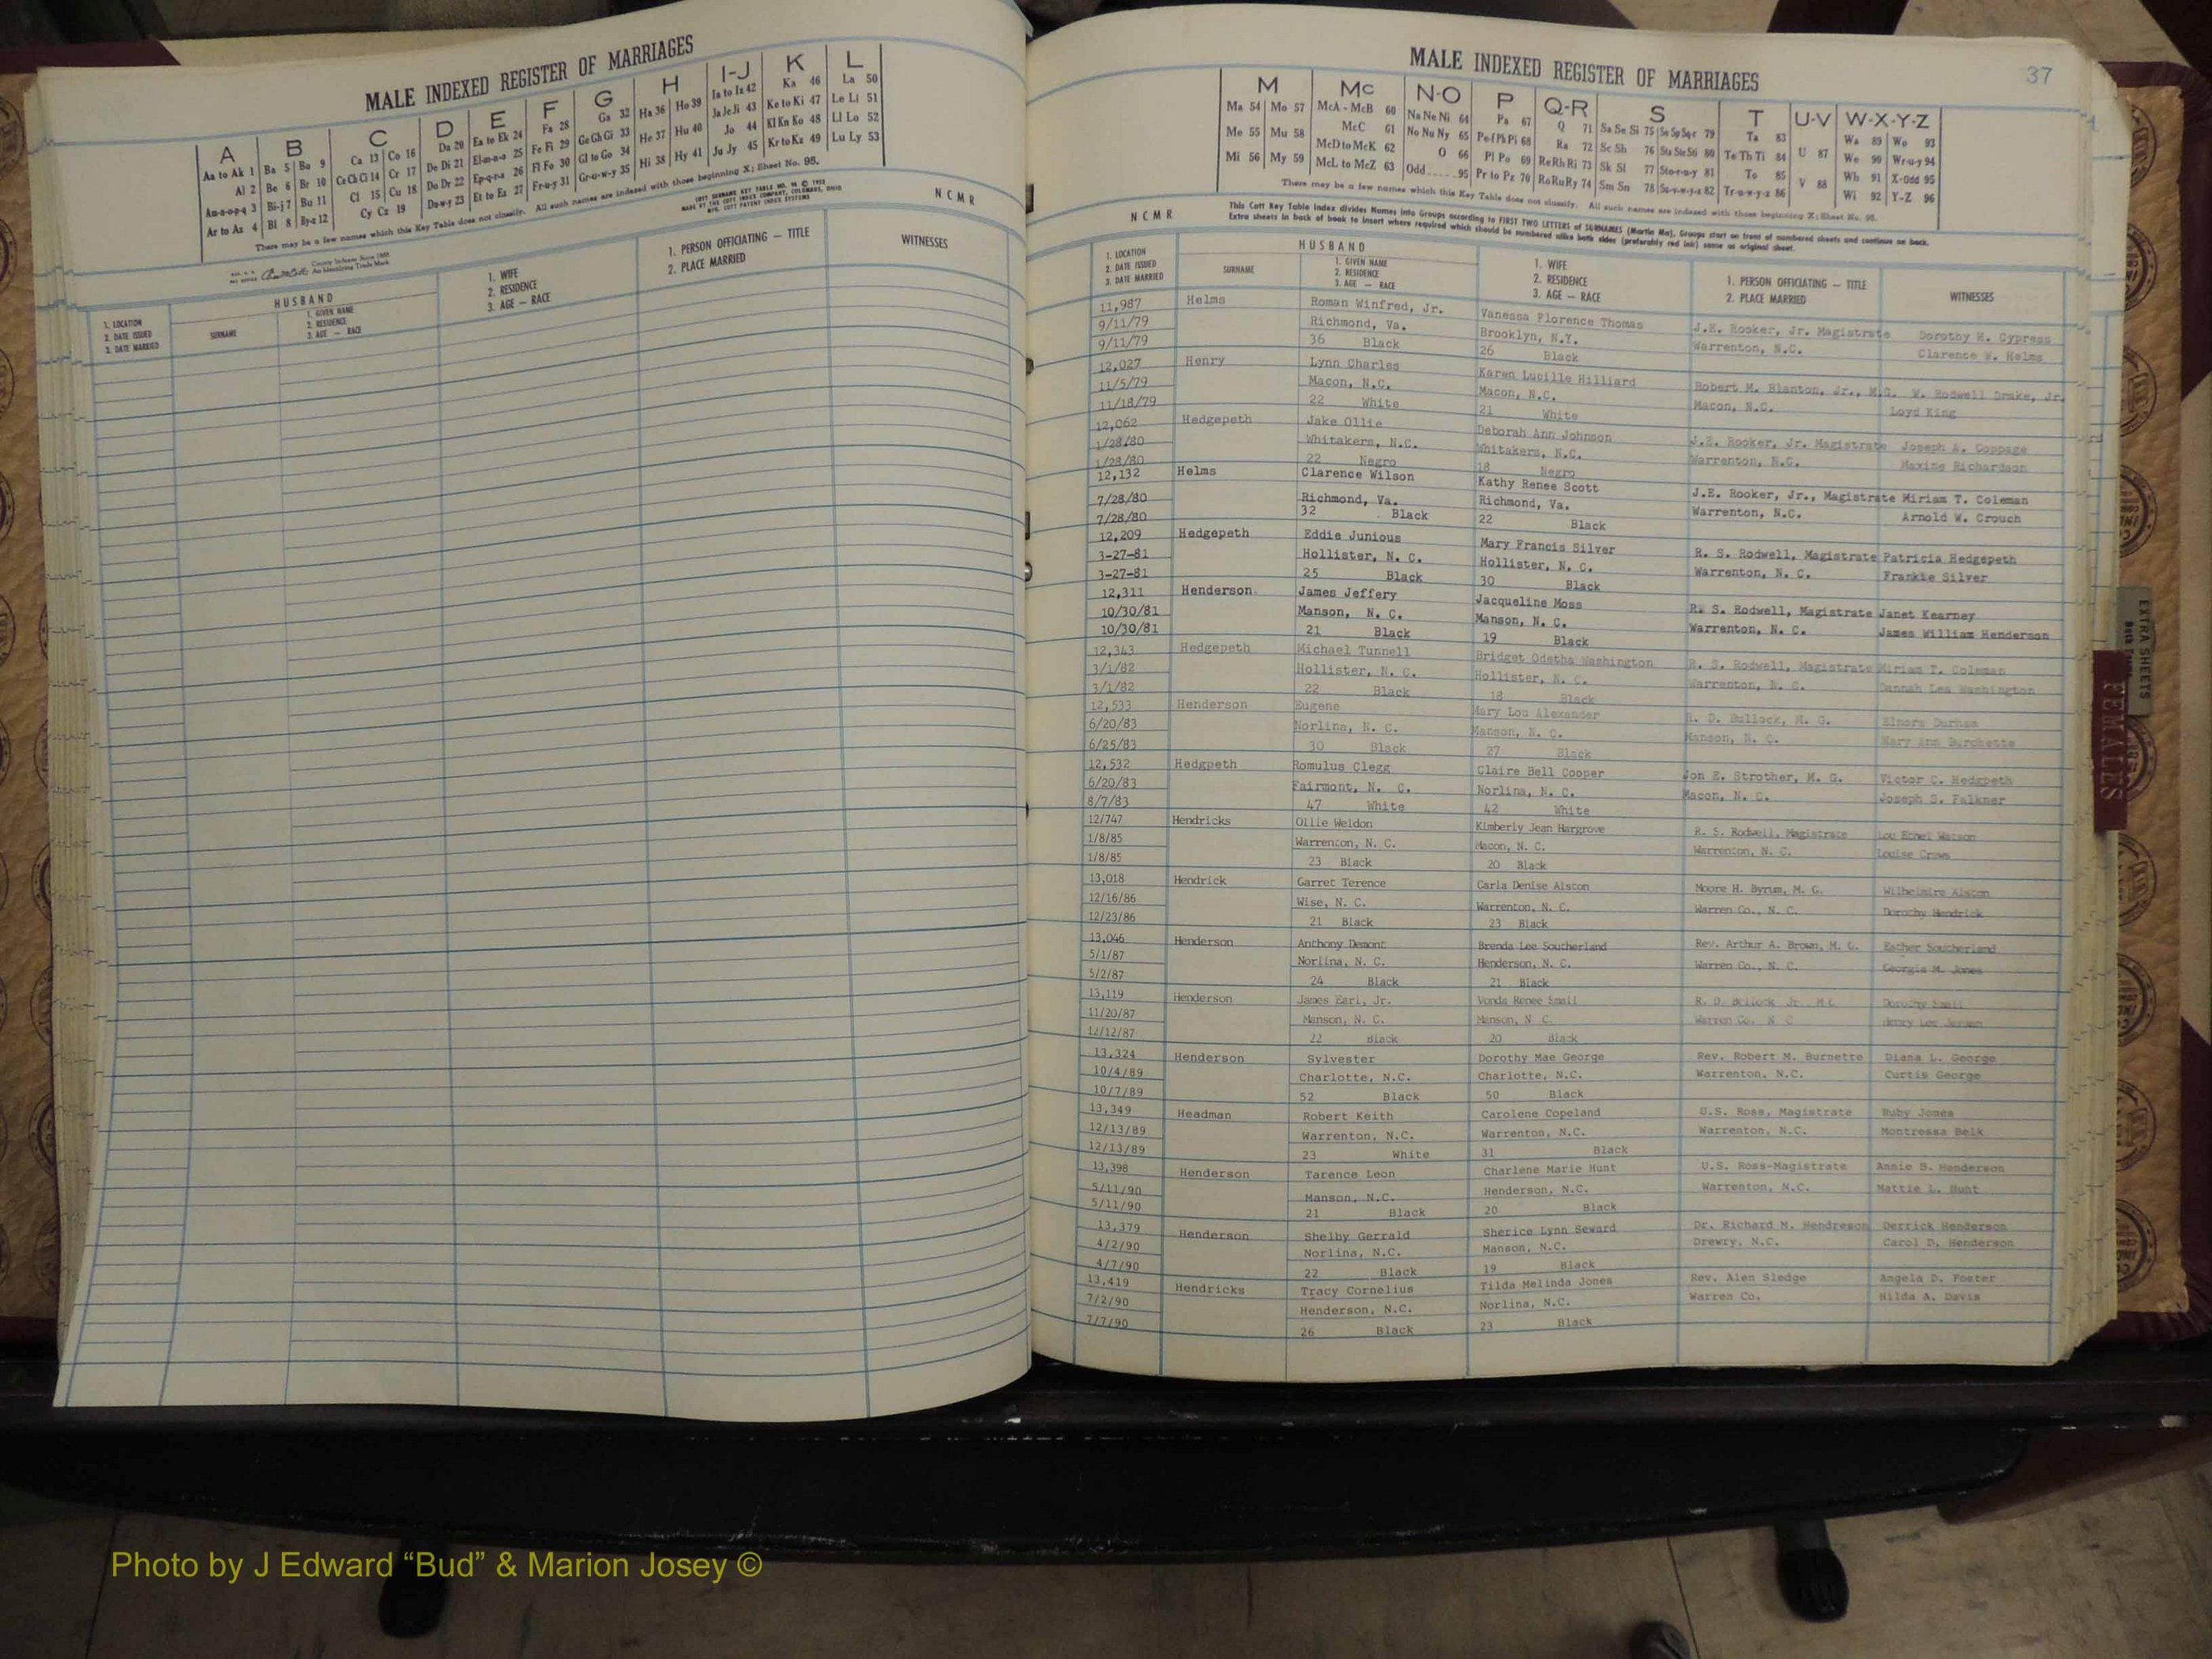 MALE INDEXED REGISTER OF MARRIAGES
A B C D E F G H I-J K L
Aa to Ak 1 Ba 5 Bo 9 Ca 13 Co 16 Da 20 Ea to Ek 24 Fa 28 Ga 32 Ha 36 Ho 39 Ia to Iz 42 Ka 46 La 50
Al 2 Be 6 Br 10 Ce Ch Ci 14 Cr 17 De Di 21 El-m-n-o 25 Fe Fi 29 Ge Gh Gi 33 He 37 Hu 40 Ja Je Ji 43 Ke to Ki 47 Le Li 51
Am-n-o-p-q 3 Bi-j 7 Bu 11 Cl 15 Cu 18 Do Dr 22 Ep-q-r-s 26 Fl Fo 30 Gl to Go 34 Hi 38 Hy 41 Jo 44 Kl Kn Ko 48 Ll Lo 52
Ar to Az 4 Bl 8 By-z 12 Cy Cz 19 Du-w-y 23 Et to Ez 27 Fr-u-y 31 Gr-u-w-y 35 Ju Jy 45 Kr to Kz 49 Lu Ly 53
There may be a few names which this Key Table does not classify. All such names are indexed with those beginning X; Sheet No. 95.
NCMR
HUSBAND
1. LOCATION
2. DATE ISSUED
3. DATE MARRIED
SURNAME
1. GIVEN NAME
2. RESIDENCE
3. AGE — RACE
1. WIFE
2. RESIDENCE
3. AGE — RACE
1. PERSON OFFICIATING — TITLE
2. PLACE MARRIED
WITNESSES
MALE INDEXED REGISTER OF MARRIAGES
37
M Mc N-O P Q-R S T U-V W-X-Y-Z
Ma 54 Mo 57 McA - McB 60 Na Ne Ni 64 Pa 67 Q 71 Sa Se Si 75 So Sp Sq-r 79 Ta 83 U 87 Wa 89 Wo 93
Me 55 Mu 58 McC 61 No Nu Ny 65 Pe Pf Ph Pi 68 Ra 72 Sc Sh 76 Sta Ste Sti 80 Te Th Ti 84 V 88 We 90 Wr-u-y 94
Mi 56 My 59 McD to McK 62 O 66 Pl Po 69 Re Rh Ri 73 Sk Sl 77 Sto-r-u-y 81 To 85 Wh 91 X-Odd 95
McL to McZ 63 Odd 95 Pr to Pz 70 Ro Ru Ry 74 Sm Sn 78 Su-v-w-y-z 82 Tr-u-w-y-z 86 Wi 92 Y-Z 96
There may be a few names which this Key Table does not classify. All such names are indexed with those beginning X; Sheet No. 95.
This Cott Key Table Index divides Names into Groups according to FIRST TWO LETTERS of SURNAMES (Martin Ma), Groups start on front of numbered sheets and continue on back.
Extra sheets in back of book to insert where required which should be numbered alike both sides (preferably red ink) same as original sheet.
NCMR
HUSBAND
1. LOCATION
2. DATE ISSUED
3. DATE MARRIED
SURNAME
1. GIVEN NAME
2. RESIDENCE
3. AGE — RACE
1. WIFE
2. RESIDENCE
3. AGE — RACE
1. PERSON OFFICIATING — TITLE
2. PLACE MARRIED
WITNESSES
11,987 Helms Roman Winfred, Jr. Vanessa Florence Thomas J.E. Rooker, Jr. Magistrate Dorothy H. Cypress
9/11/79 Richmond, Va. Brooklyn, N.Y. Warrenton, N.C. Clarence W. Helms
9/11/79 36 Black 26 Black
12,027 Henry Lynn Charles Karen Lucille Hilliard Robert M. Blanton, Jr., M.G. W. Rodwell Drake, Jr.
11/5/79 Macon, N.C. Macon, N.C. Macon, N.C. Loyd King
11/18/79 22 White 21 White
12,062 Hedgepeth Jake Ollie Deborah Ann Johnson J.E. Rooker, Jr. Magistrate Joseph A. Coppage
1/28/80 Whitakers, N.C. Whitakers, N.C. Warrenton, N.C. Maxine Richardson
1/28/80 22 Negro 18 Negro
12,132 Helms Clarence Wilson Kathy Renee Scott J.E. Rooker, Jr., Magistrate Miriam T. Coleman
7/28/80 Richmond, Va. Richmond, Va. Warrenton, N.C. Arnold W. Crouch
7/28/80 32 Black 22 Black
12,209 Hedgepeth Eddie Junious Mary Francis Silver R. S. Rodwell, Magistrate Patricia Hedgepeth
3-27-81 Hollister, N. C. Hollister, N. C. Warrenton, N. C. Frankie Silver
3-27-81 25 Black 30 Black
12,311 Henderson James Jeffery Jacqueline Moss R. S. Rodwell, Magistrate Janet Kearney
10/30/81 Manson, N. C. Manson, N. C. Warrenton, N. C. James William Henderson
10/30/81 21 Black 19 Black
12,343 Hedgepeth Michael Tunnell Bridget Odetha Washington R. S. Rodwell, Magistrate Miriam T. Coleman
3/1/82 Hollister, N. C. Hollister, N. C. Warrenton, N. C. Dannah Lea Washington
3/1/82 22 Black 18 Black
12,533 Henderson Eugene Mary Lou Alexander R. D. Bullock, M. G. Elnora Durham
6/20/83 Norlina, N. C. Manson, N. C. Manson, N. C. Mary Ann Burchette
6/25/83 30 Black 27 Black
12,532 Hedgpeth Romulus Clegg Claire Bell Cooper Jon E. Strother, M. G. Victor C. Hedgpeth
6/20/83 Fairmont, N. C. Norlina, N. C. Macon, N. C. Joseph S. Falkner
8/7/83 47 White 42 White
12/747 Hendricks Ollie Weldon Kimberly Jean Hargrove R. S. Rodwell, Magistrate Lou Ethel Watson
1/8/85 Warrenton, N. C. Macon, N. C. Warrenton, N. C. Louise Crews
1/8/85 23 Black 20 Black
13,018 Hendrick Garret Terence Carla Denise Alston Moore H. Byrum, M. G. Wilhelmire Alston
12/16/86 Wise, N. C. Warrenton, N. C. Warren Co., N. C. Dorothy Hendrick
12/23/86 21 Black 23 Black
13,046 Henderson Anthony Demont Brenda Lee Southerland Rev. Arthur A. Brown, M. G. Esther Southerland
5/1/87 Norlina, N. C. Henderson, N. C. Warren Co., N. C. Georgia M. Jones
5/2/87 24 Black 21 Black
13,119 Henderson James Earl, Jr. Vonda Renee Small R. D. Bullock Jr. M.G. Dorothy Small
11/20/87 Manson, N. C. Manson, N C. Warren Co. N C Henry Lee
12/12/87 22 Black 20 Black
13,324 Henderson Sylvester Dorothy Mae George Rev. Robert M. Burnette Diana L. George
10/4/89 Charlotte, N.C. Charlotte, N.C. Warrenton, N.C. Curtis George
10/7/89 52 Black 50 Black
13,349 Headman Robert Keith Carolene Copeland U.S. Ross, Magistrate Ruby Jones
12/13/89 Warrenton, N.C. Warrenton, N.C. Warrenton, N.C. Montressa Belk
12/13/89 23 White 31 Black
13,398 Henderson Tarence Leon Charlene Marie Hunt U.S. Ross-Magistrate Annie B. Henderson
5/11/90 Manson, N.C. Henderson, N.C. Warrenton, N.C. Mattie L. Hunt
5/11/90 21 Black 20 Black
13,379 Henderson Shelby Gerrald Sherice Lynn Seward Dr. Richard M. Hendreson Derrick Henderson
4/2/90 Norlina, N.C. Manson, N.C. Drewry, N.C. Carol D. Henderson
4/7/90 22 Black 19 Black
13,419 Hendricks Tracy Cornelius Tilda Melinda Jones Rev. Alen Sledge Angela D. Foster
7/2/90 Henderson, N.C. Norlina, N.C. Warren Co. Nilda A. Davis
7/7/90 26 Black 23 Black
EXTRA SHEETS
FEMALES
Photo by J Edward “Bud” & Marion Josey ©